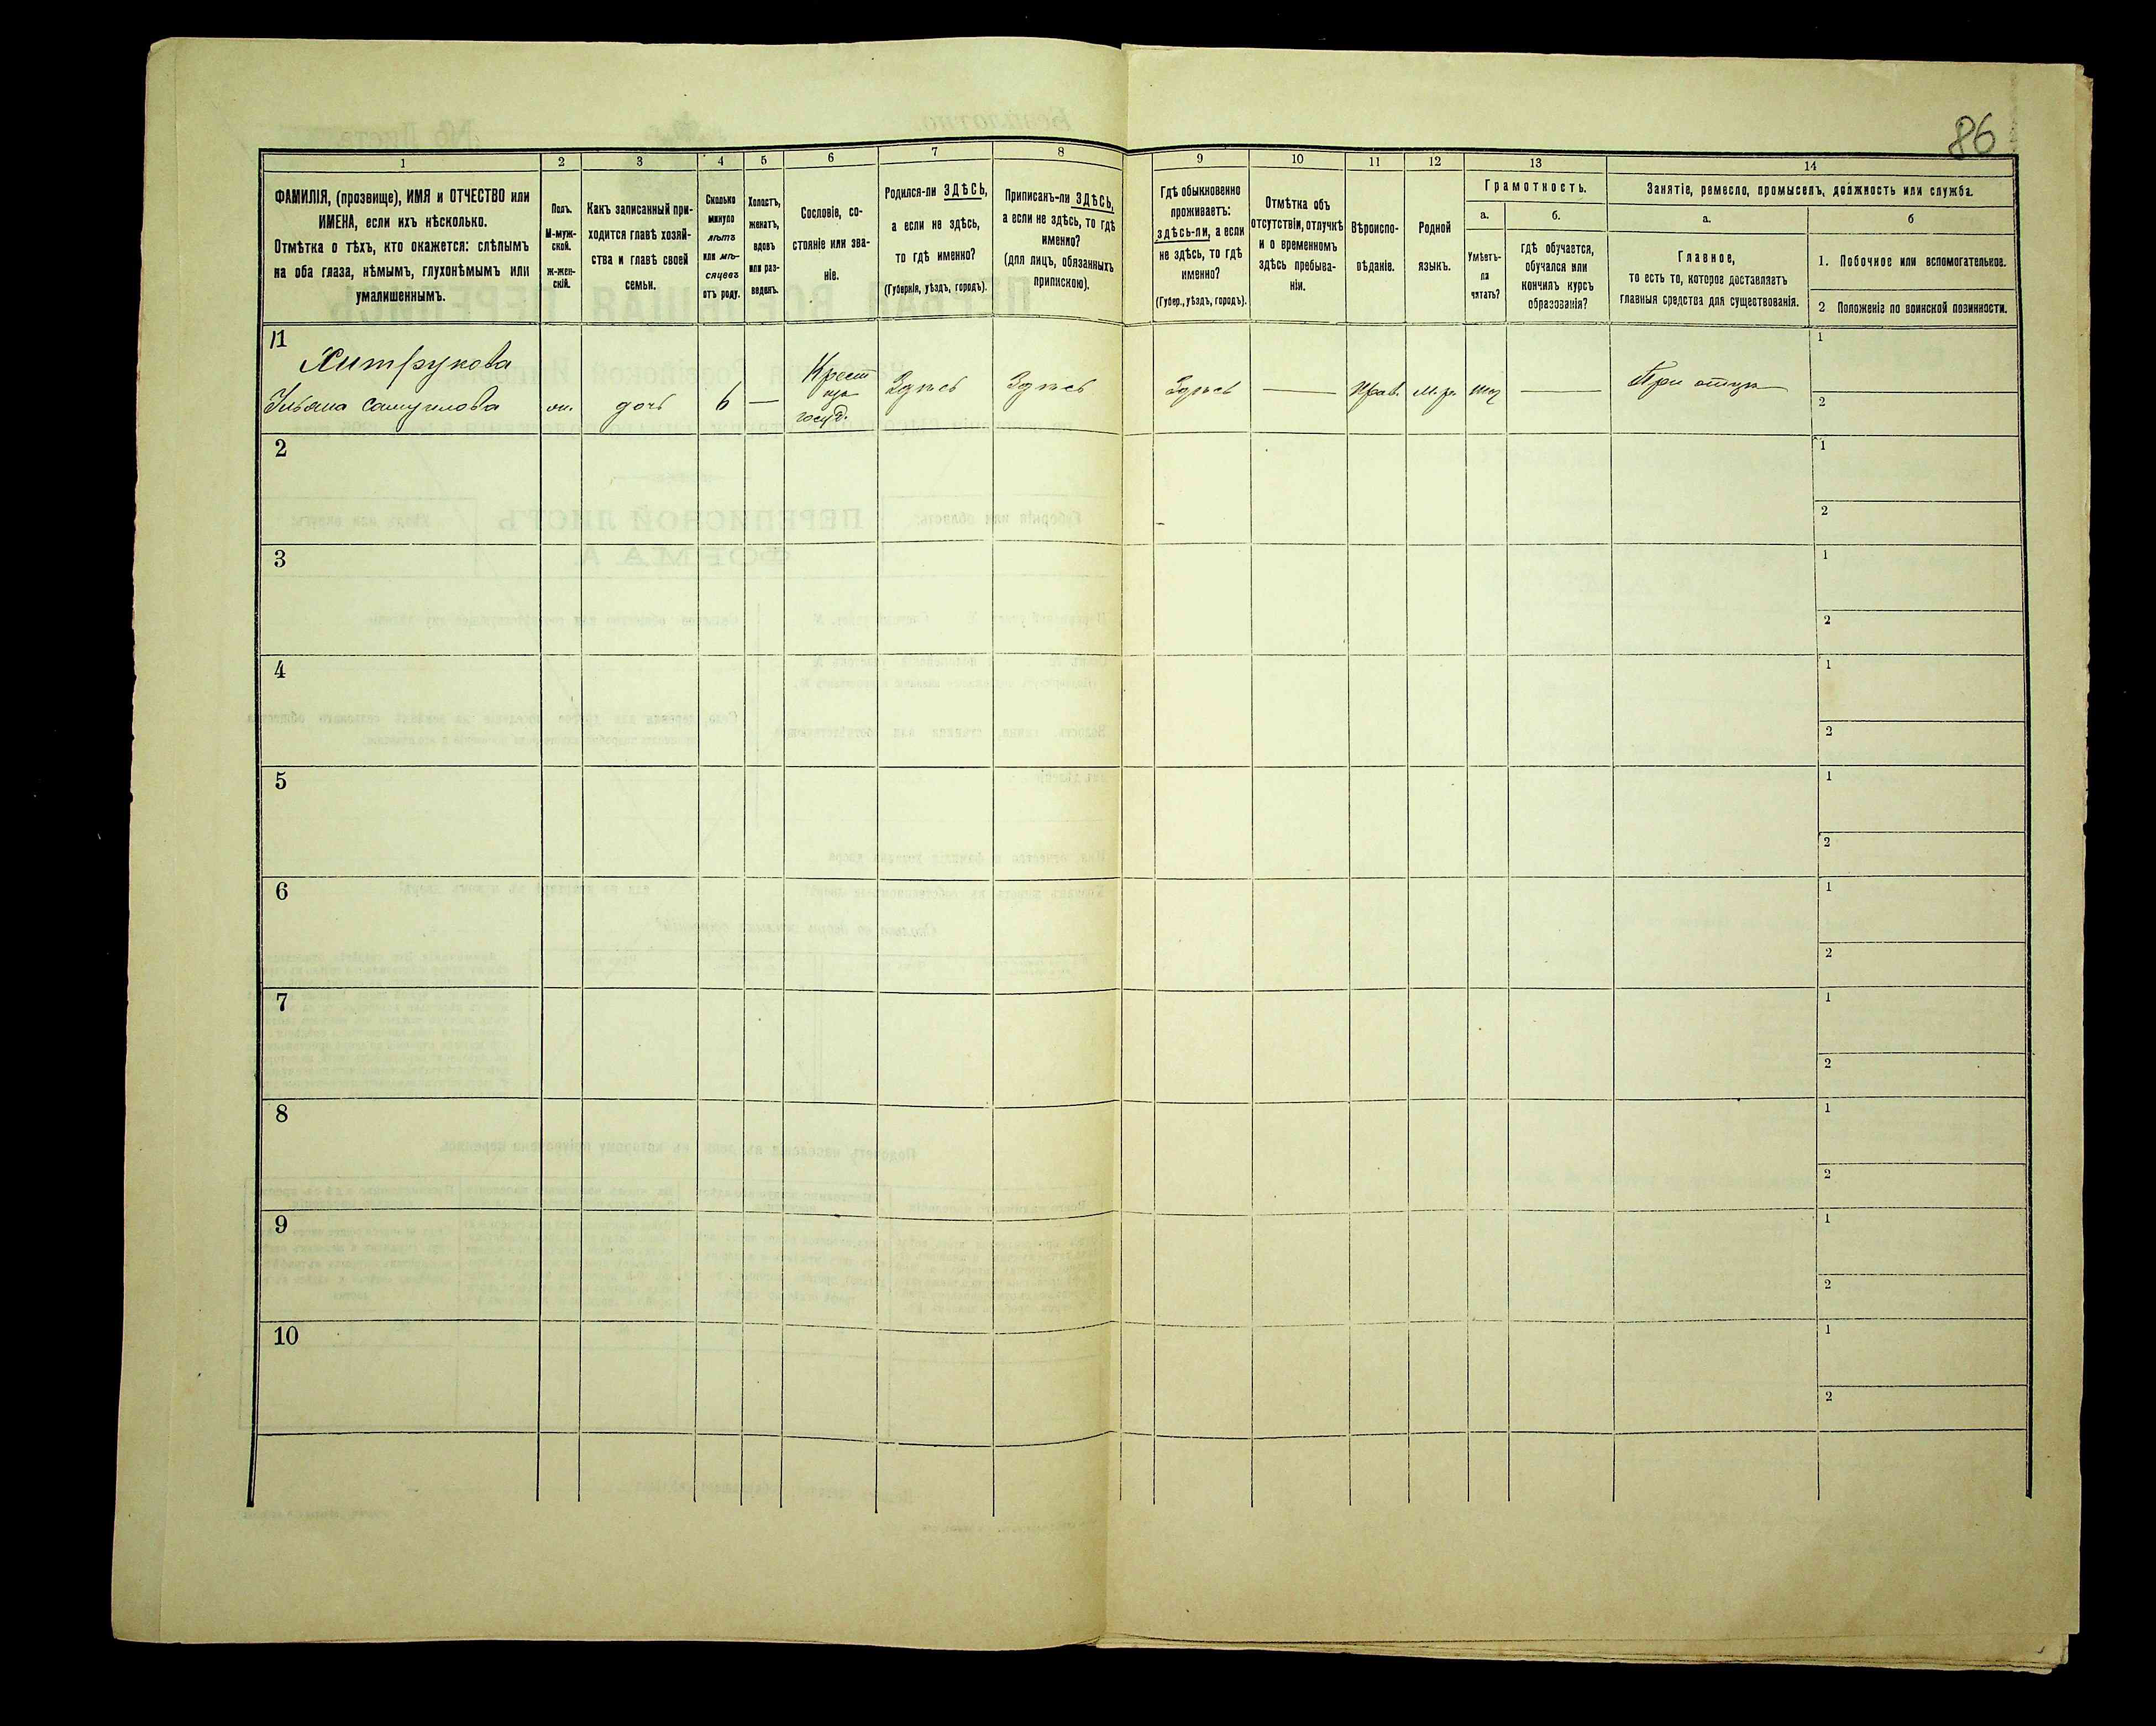 86
1
2
3
4
5
6
7
8
9
10
11
12
13
14
ФАМИЛІЯ, (прозвище), ИМЯ и ОТЧЕСТВО или
ИМЕНА, если ихъ нѣсколько.
Отмѣтка о тѣхъ, кто окажется: слѣпымъ
на оба глаза, нѣмымъ, глухонѣмымъ или
умалишеннымъ.
Полъ.
М-муж-
ской.
ж-жен-
скій.
Какъ записанный при-
ходится главѣ хозяй-
ства и главѣ своей
семьи.
Сколько
минуло
лѣтъ
или мѣ-
сяцевъ
отъ роду.
Холостъ,
женатъ,
вдовъ
или раз-
веденъ.
Сословіе, со-
стояніе или зва-
ніе.
Родился-ли ЗДѢСЬ,
а если не здѣсь,
то гдѣ именно?
(Губернія, уѣздъ, городъ).
Приписанъ-ли ЗДѢСЬ,
а если не здѣсь, то гдѣ
именно?
(для лицъ, обязанныхъ
припискою).
Гдѣ обыкновенно
проживаетъ:
здѣсь-ли, а если
не здѣсь, то гдѣ
именно?
(Губер., уѣздъ, городъ).
Отмѣтка объ
отсутствіи, отлучкѣ
и о временномъ
здѣсь пребыва-
ніи.
Вѣроиспо-
вѣданіе.
Родной
языкъ.
Грамотность.
а.
Умѣетъ-
ли
читать?
б.
гдѣ обучается,
обучался или
кончилъ курсъ
образованія?
Занятіе, ремесло, промыселъ, должность или служба.
а.
Главное,
то есть то, которое доставляетъ
главныя средства для существованія.
б
1. Побочное или вспомогательное.
2 Положеніе по воинской повинности.
11
Хитрукова
Самуилова
дочь
6
—
Крест
из
госуд.
Здѣсь
Здѣсь
Здѣсь
—
Прав.
м.р.
—
При отцѣ
1
2
2
1
2
3
1
2
4
1
2
5
1
2
6
1
2
7
1
2
8
1
2
9
1
2
10
1
2